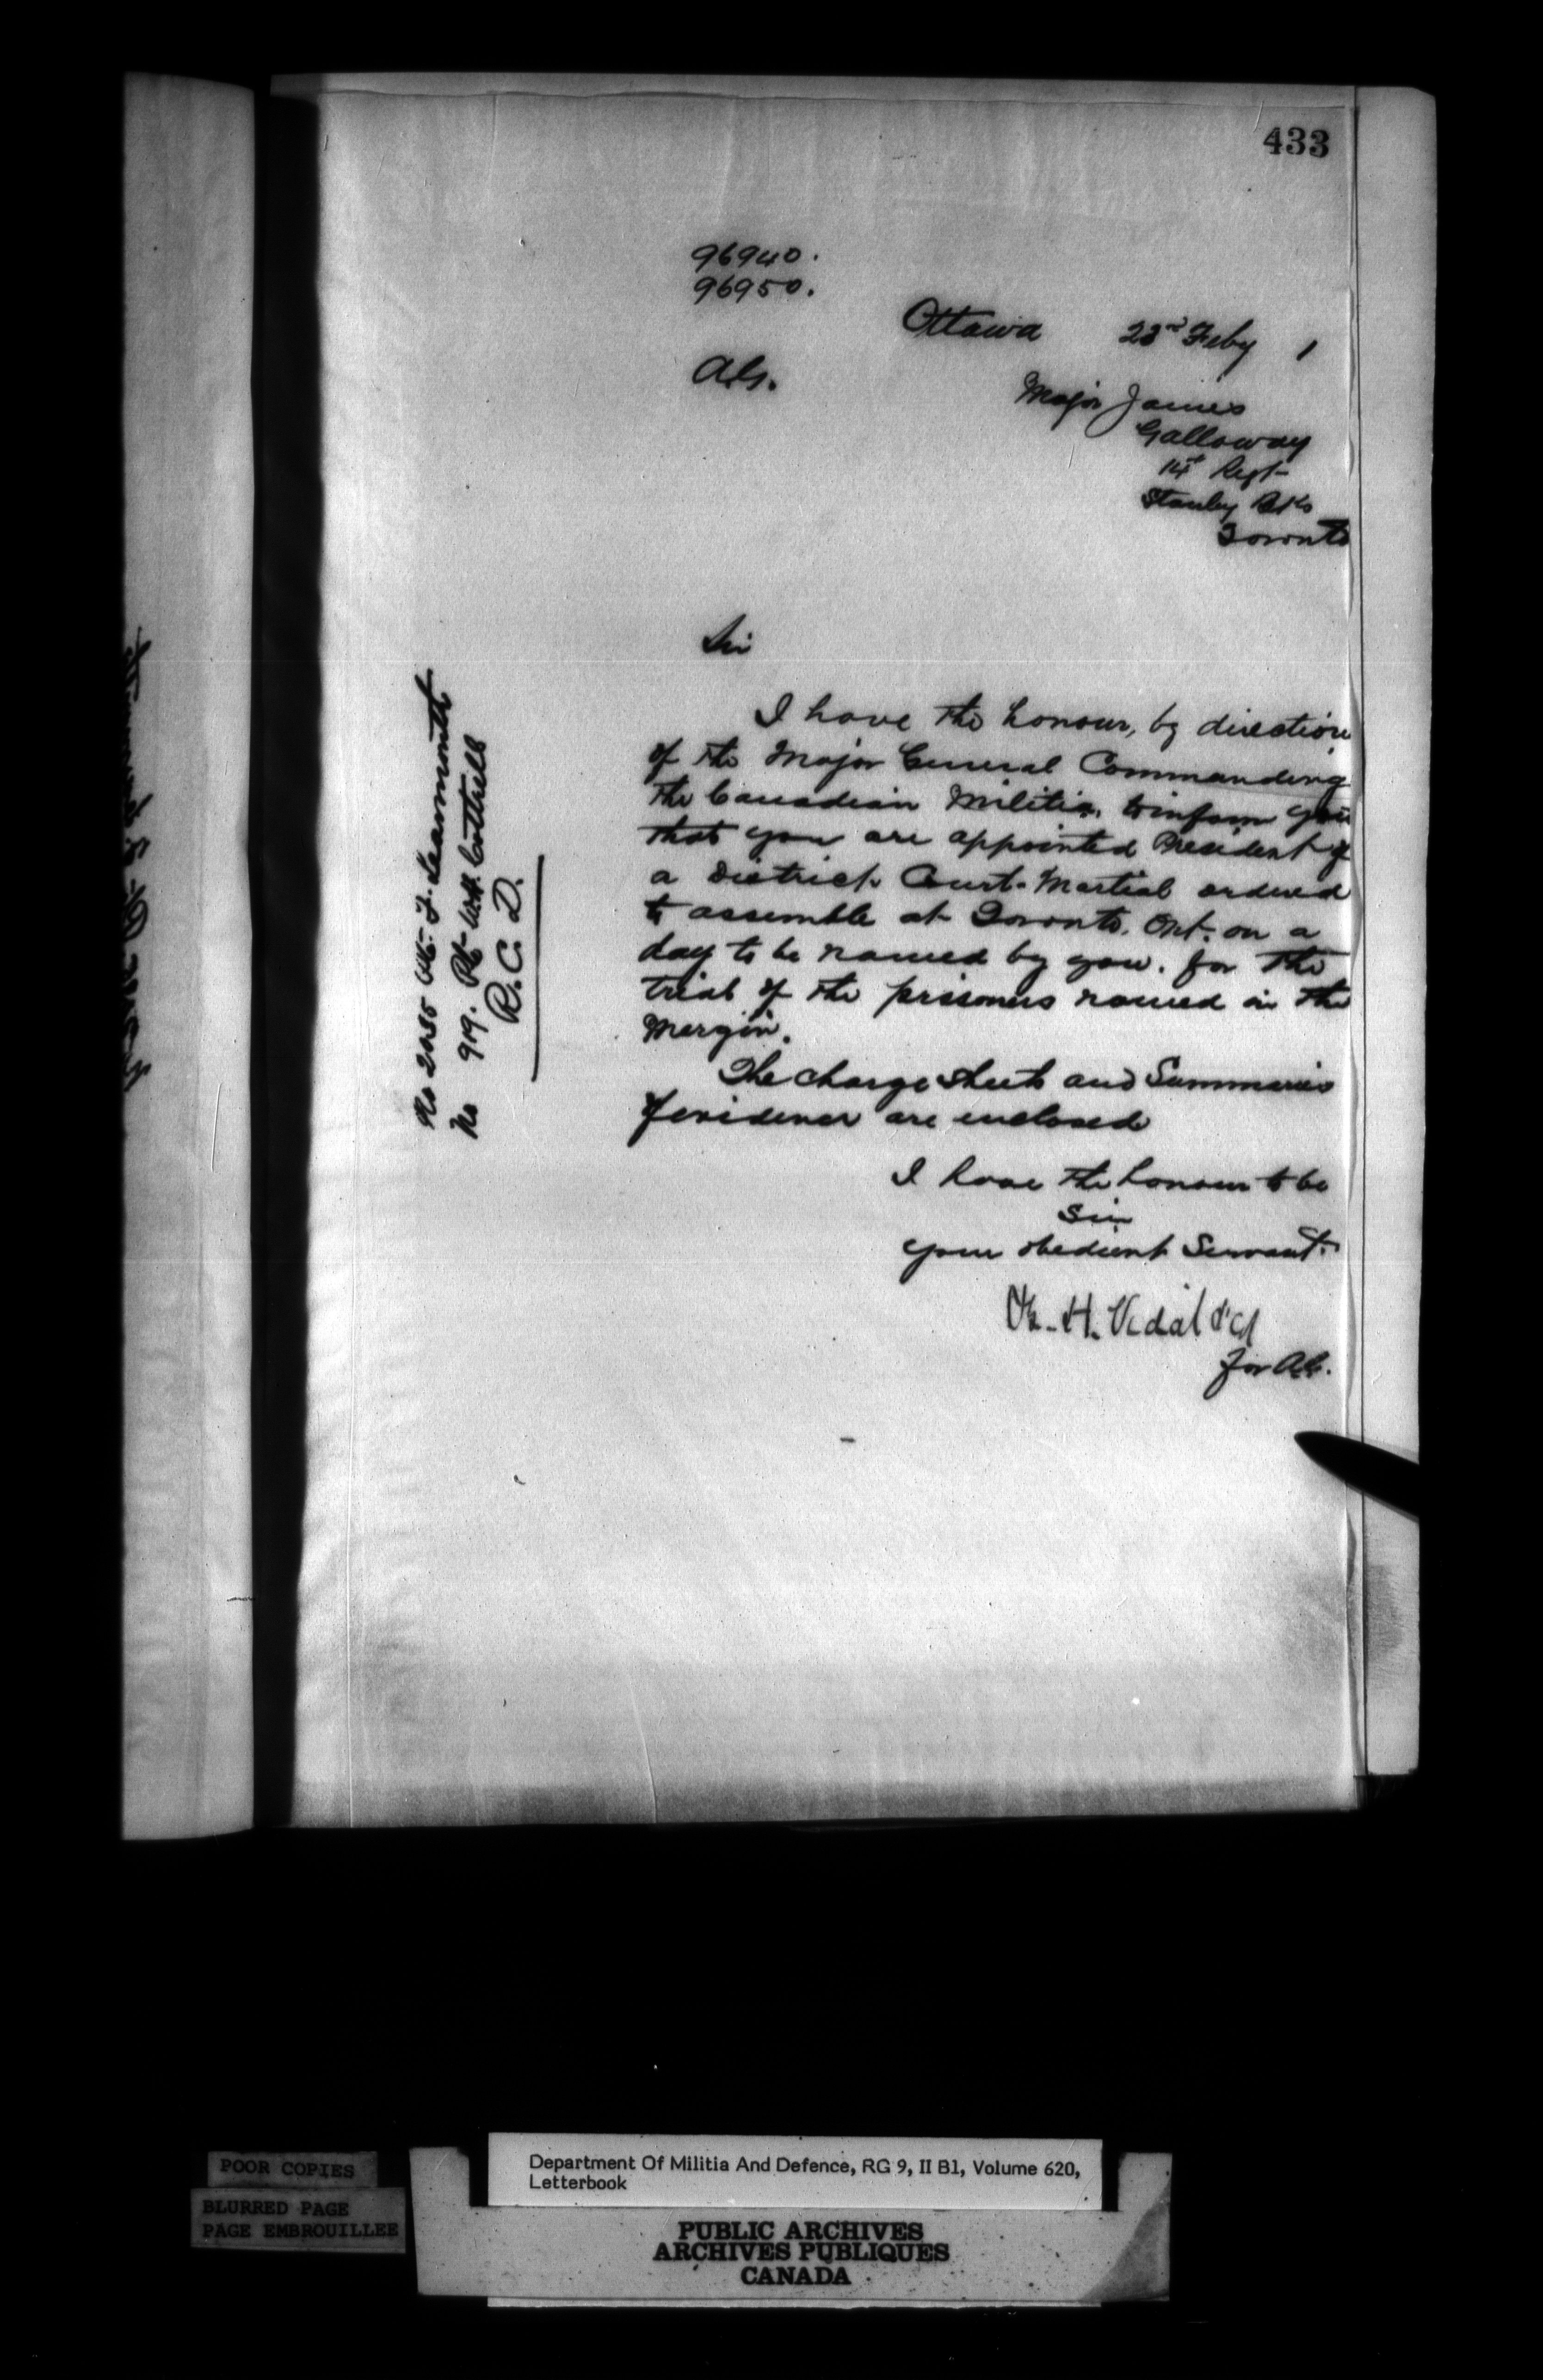 433
96940.
96950.
Ottawa 23rd Feby 1
AG.
Major James
Galloway
14th Regt
Stanley Bks
Toronto
Sir
I have the honour, by direction
of the Major General Commanding
the Canadian Militia, to inform you
that you are appointed President of
a District Court-Martial ordered
to assemble at Toronto. Ont. on a
day to be named by you. for the
trial of the prisoners named in the
Margin.
The charge sheets and Summaries
of evidence are enclosed
I have the honour to be
Sir
your obedient Servant.
H. Vidal
for AG.
No F. Learmonth
No 919. Pte W.H. Cottrell
R.C.D.
POOR COPIES
BLURRED PAGE
PAGE EMBROUILLEE
Department Of Militia And Defence, RG 9, II B1, Volume 620,
Letterbook
PUBLIC ARCHIVES
ARCHIVES PUBLIQUES
CANADA